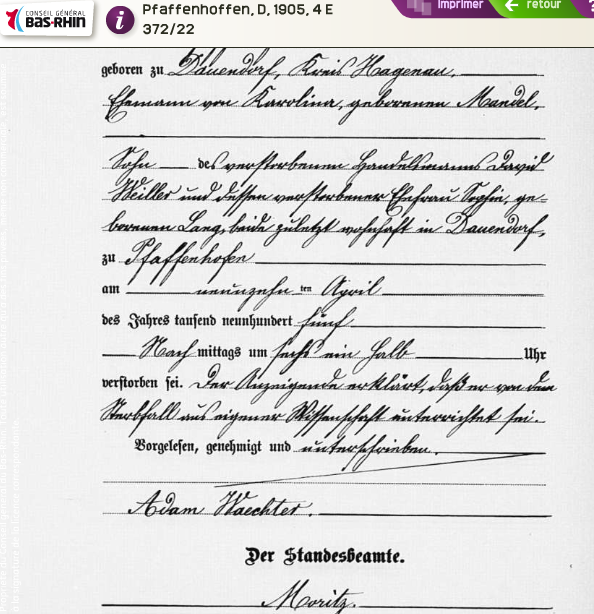 CONSEIL GÉNÉRAL
BAS-RHIN
Pfaffenhoffen, D, 1905, 4 E
372/22
imprimer
retour
?
geboren zu Dauendorf, Kreis Hagenau,
Ehemann von Karolina, geborenen Mandel,
Sohn des verstorbenen Handelsmanns David
Weiller und dessen verstorbener Ehefrau Sophie, ge-
borenen Lang, beide zuletzt wohnhaft in Dauendorf,
zu Pfaffenhofen
am neunzehn ten April
des Jahres tausend neunhundert fünf
Nach mittags um sechs ein halb Uhr
verstorben sei. Der Anzeigende erklärt, daß er von dem
Sterbfall aus eigener Wissenschaft unterrichtet sei.
Vorgelesen, genehmigt und unterschrieben.
Adam Waechter.
Der Standesbeamte.
Moritz.